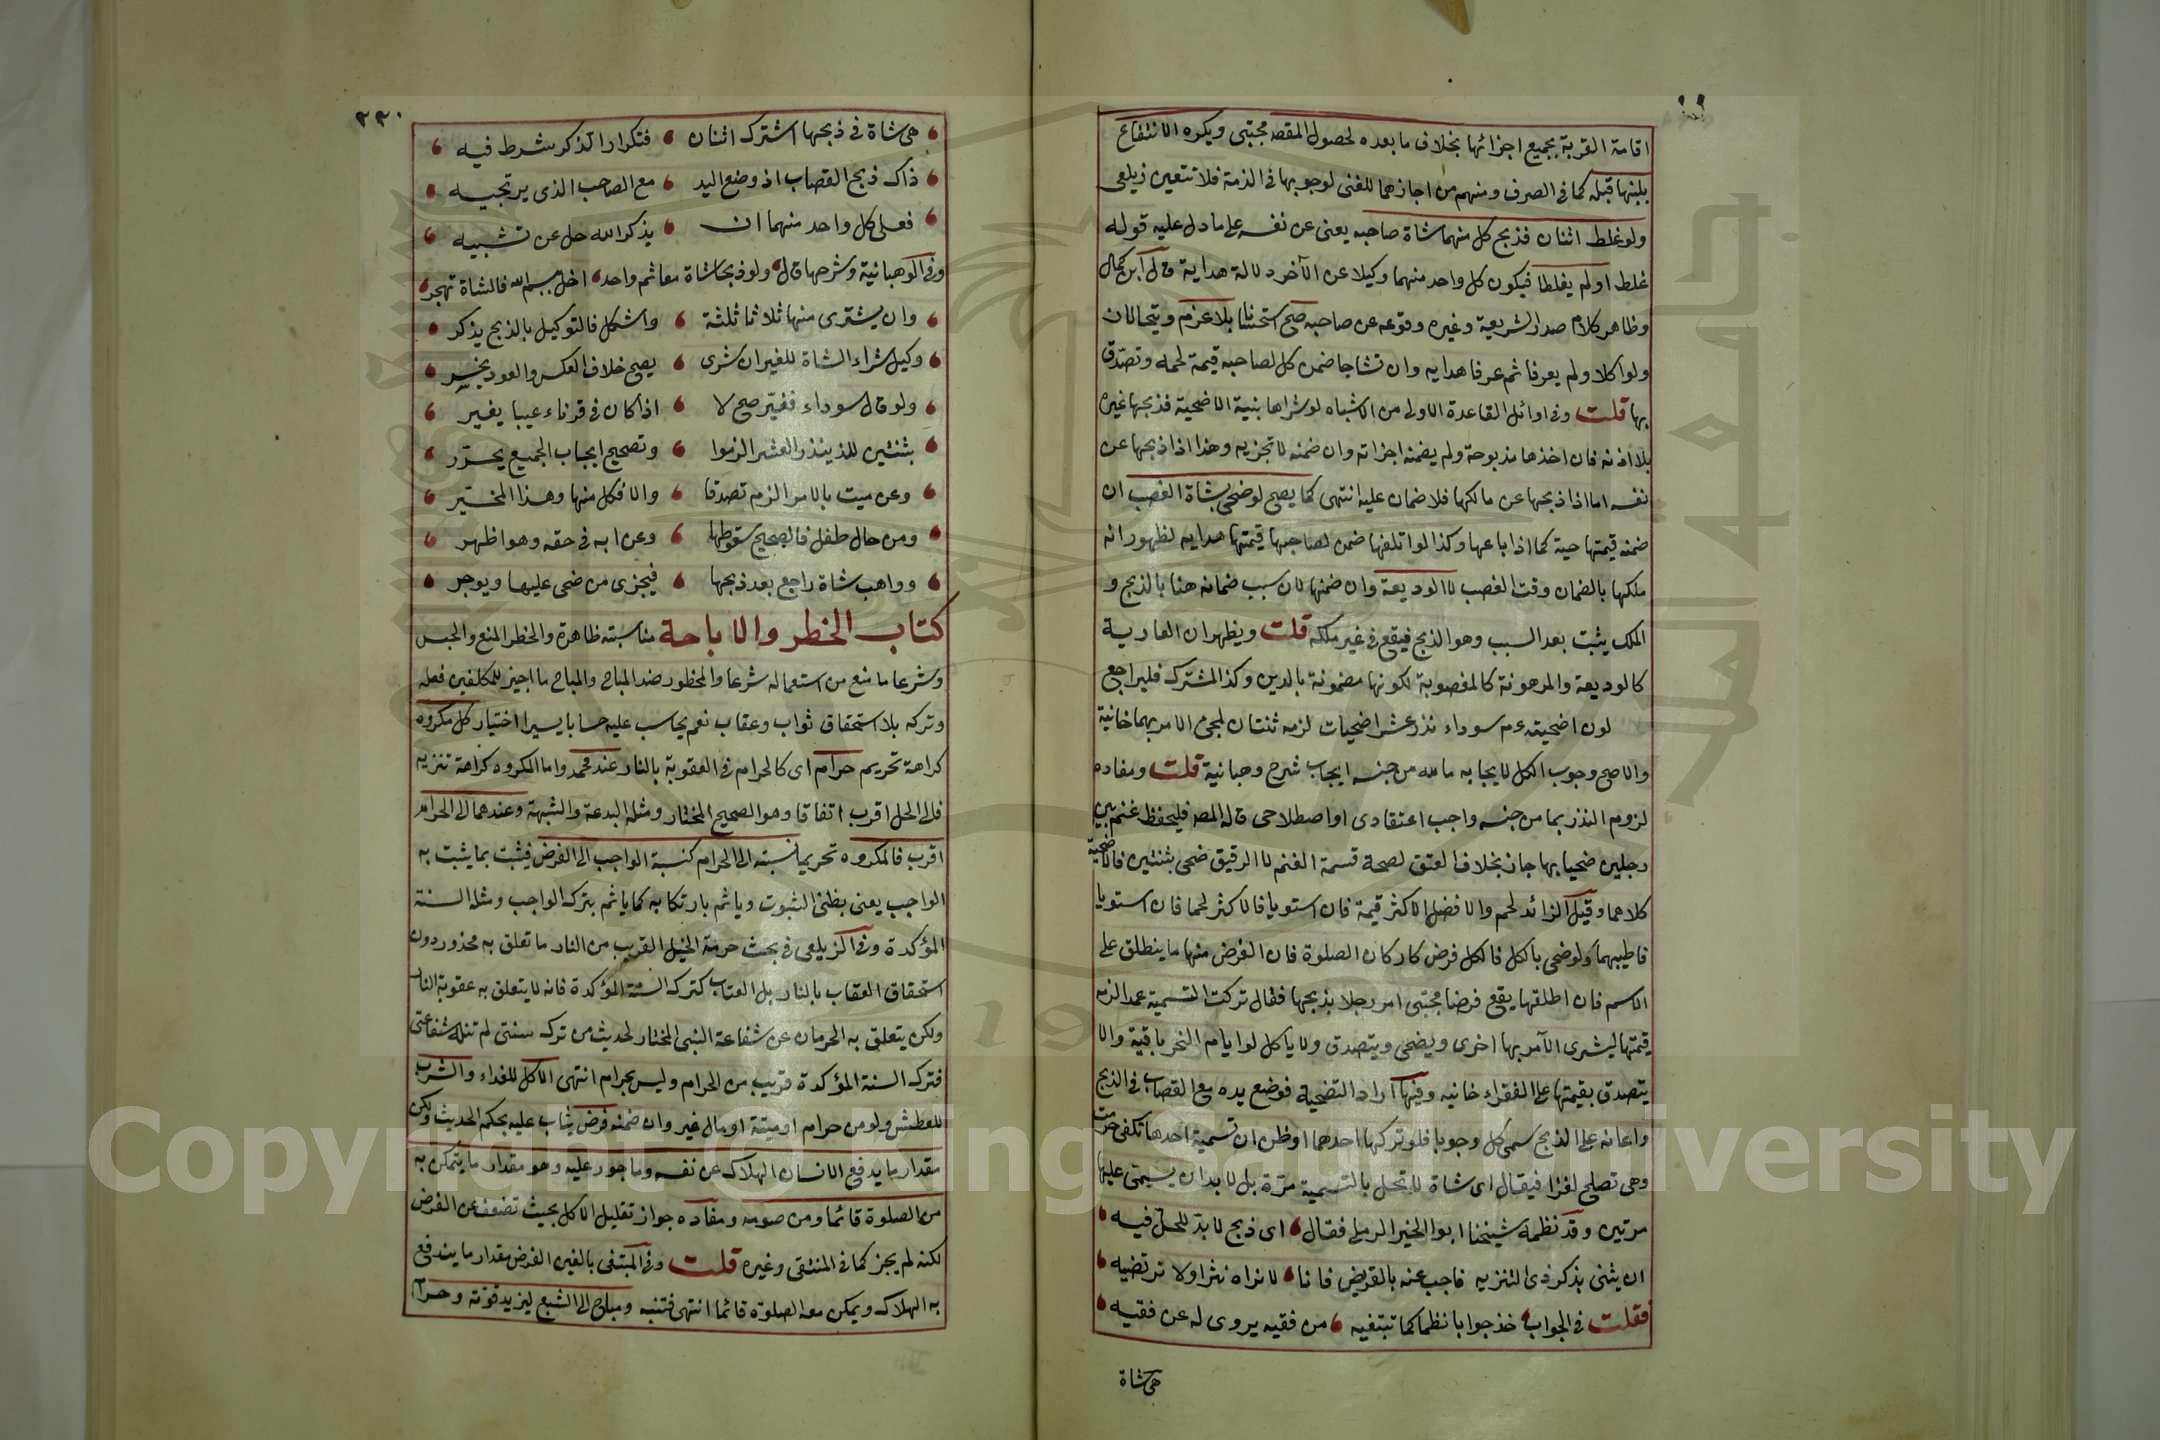 اقامة القربة بجميع اجزائها بخلاف ما بعده لحصول المقصه مجتبى ويكره الانتفاع
بلبنها قبله كما فى الصرف ومنهم من اجازهما للغنى لوجوبها فى الذمة فلا تتعين زيلعى
ولو غلط اثنان فذبح كل منهما شاة صاحبه يعنى عن نفسه على ما دل عليه قوله
غلط او لم يغلطا فيكون كل واحد منهما وكيلا عن الآخر دلالة هداية قال ابن كمال
وظاهر كلام صدر الشريعة وغيره وقوعه عن صاحبه صح استحسانا بلا غرم ويتحالان
ولو اكلا ولم يعرفا ثم عرفا هدايه وان تشاحا ضمن كل لصاحبه قيمة لحمه وتصدق
بها قلت وفى اوائل القاعدة الاولى من الاشباه لو شراها بنية الاضحية فذبحها غيره
بلا اذنه فان اخذها مذبوحة ولم يضمنه اجزاته وان ضمنه لا تجزيه وهذا اذا ذبحها عن
نفسه اما اذا ذبحها عن مالكها فلا ضمان عليه انتهى كما يصح لو ضحى بشاة الغصب ان
ضمنه قيمتها حية كما اذا باعها وكذا لو اتلفها ضمن لصاحبها قيمتها هدايه لظهور انه
ملكها بالضمان وقت الغصب لا الوديعة وان ضمنها لان سبب ضمانه هنا بالذبح و
الملك يثبت بعد السبب وهو الذبح فيقع فى غير ملكه قلت ويظهر ان العارية
كالوديعة والمرهونة كالمغصوبة لكونها مضمونة بالدين وكذا المشترك فليراجع
لون اضحيته وم سوداء نذر عشر اضحيات لزمه ثنتان لمجئ الامر بهما خانية
والاصح وجوب الكل لايجابه ما لله من جنسه ايجاب شرح وهبانية قلت ومفاده
لزوم النذر بما من جنسه واجب اعتقادى او اصطلاحى قاله المصه فليحفظ غنم بين
رجلين ضحيا بها جاز بخلاف العتق لصحة قسمة الغنم لا الرقيق ضحى بثنتين فالاضحية
كلاهما وقيل الزائد لحم والافضل الاكثر قيمة فان استويا فالاكثر لحما فان استويا
فاطيبهما ولو ضحى بالكل فالكل فرض كاركان الصلوة فان الفرض منها ما ينطلق على
الاسم فان اطلقها يقع فرضا مجتبى امر رجلا بذبحها فقال تركت التسمية عمدا لزمه
قيمتها ليشرى الآمر بها اخرى ويضحى ويتصدق ولا ياكل لو ايام النحر باقية والا
يتصدق بقيمتها على الفقراء خانيه وفيها اراد التضحية فوضع يده مع القصاب فى الذبح
واعانه على الذبح سمى كل وجوبا فلو تركها احدهما او ظن ان تسمية احدهما تكفى حرمت
وهى تصلح لغزا فيقال اى شاة لا تحل بالتسمية مرة بل لا بد ان يسمى عليها
مرتين وقد نظمه شيخنا ابوا الخير الرملى فقال اى ذبح لا بد للحل فيه
ان يثنى بذكر ذى التنزيه فاجب عنه بالقريض فانا لا نراه نثرا ولا ترتضيه
فقلت فى الجواب خذ جوابا نظما كما تبتغيه من فقيه يروى له عن فقيه
هى شاة
٢٣٠
هى شاة فى ذبحها اشترك اثنان فتكرار الذكر شرط فيه
ذاك ذبح القصاب اذ وضع اليد مع الصاحب الذى يرتجيه
فعلى كل واحد منهما ان يذكر الله جل عن تشبيه
وفى الوهبانية وشرحها قال ولو ذبحا شاة معا ثم واحد اخل ببسم الله فالشاة تهجر
وان يشترى منها ثلاثا ثلثة واشكل فالتوكيل بالذبح يذكر
وكيل شراء الشاة للغير ان شرى يصح خلاف العكس والعود يخسر
ولو قال سوداء فغير صح لا اذا كان فى قرناء عيبا يغير
بثنتين للذ ينذر العشر الزموا وتصحيح ايجاب الجميع يحرر
وعن ميت بالامر الزم تصدقا والا فكل منها وهذا المخير
ومن حال طفل فالصحيح سقوطها وعن ابه فى حقه وهو اظهر
وواهب شاة راجع بعد ذبحها فيجزى من ضحى عليها ويوجر
كتاب الخطر والاباحة مناسبته ظاهرة والخطر المنع والحبس
وشرعا ما منع من استعماله شرعا والمحظور ضد المباح والمباح ما اجيز للمكلفين فعله
وتركه بلا استحقاق ثواب وعقاب نعم يحاسب عليه حسابا يسيرا اختيار كل مكروه
كراهة تحريم حرام اى كالحرام فى العقوبة بالنار عند محمد واما المكروه كراهة تنزيه
فالى الحل اقرب اتفاقا وهو الصحيح المختار ومثله البدعة والشبهة وعندهما الى الحرام
اقرب فالمكروه تحريما نسبته الى الحرام كنسبة الواجب الى الفرض فيثبت بما يثبت به
الواجب يعنى بظنى الثبوت وياثم بارتكابه كما ياثم بترك الواجب ومثله السنة
المؤكدة وفى الزيلعى فى بحث حرمة الخيل القريب من النار ما تعلق به محذور دون
استحقاق العقاب بالنار بل العتاب كترك السنة المؤكدة فانه لا يتعلق به عقوبة النار
ولكن يتعلق به الحرمان عن شفاعة النبى المختار لحديث من ترك سنتى لم تنله شفاعتى
فترك السنة المؤكدة قريب من الحرام وليس بحرام انتهى الاكل للغداء والشرب
للعطش ولو من حرام او ميتة او مال غير وان ضمنه فرض يثاب عليه بحكم الحديث ولكن
مقدار ما يدفع الانسان الهلاك عن نفسه وماجور عليه وهو مقدار ما يتمكن به
من الصلوة قائما ومن صومه ومفاده جواز تقليل الاكل بحيث تضعف عن الفرض
لكنه لم يجز كما فى المنتقى وغيره قلت وفى المبتغى بالغين الفرض مقدار ما يندفع
به الهلاك ويمكن معه الصلوة قائما انتهى فتنبه ومباح الى الشبع ليزيد قوته وحرام
Copyright © King Saud University